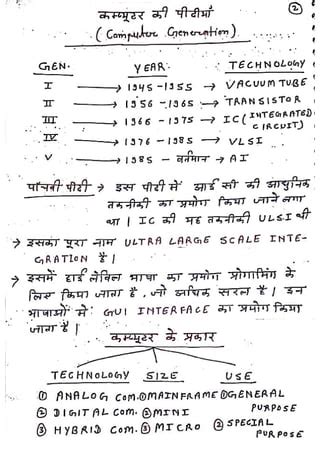 ②
कम्प्यूटर की पीढीयाँ
( Computer Generation )
GEN. YEAR TECHNOLOGY
I → 1945-1955 → VACUUM TUBE
II → 1956 - 1965 → TRANSISTOR
III → 1966 - 1975 → IC (INTEGRATED CIRCUIT)
IV → 1976 - 1985 → VLSI
V → 1985 - वर्तमान → AI
पांचवी पीढी → इस पीढी में आई सी की आधुनिक
तकनीकी का प्रयोग किया जाने लगा
था | IC की यह तकनीकी ULSI थी
→ इसका पूरा नाम ULTRA LARGE SCALE INTE-
GRATION है |
→ इसमें हाई लेविल भाषा का प्रयोग प्रोग्रामिंग के
लिए किया जाता है, जो अधिक सरल है | इन
भाषाओं में GUI INTERFACE का प्रयोग किया
जाता है |
कम्प्यूटर के प्रकार
TECHNOLOGY SIZE USE
① ANALOG COM. ① MAINFRAME ① GENERAL PURPOSE
② DIGITAL COM. ② MINI
③ HYBRID COM. ③ MICRO ② SPECIAL PURPOSE